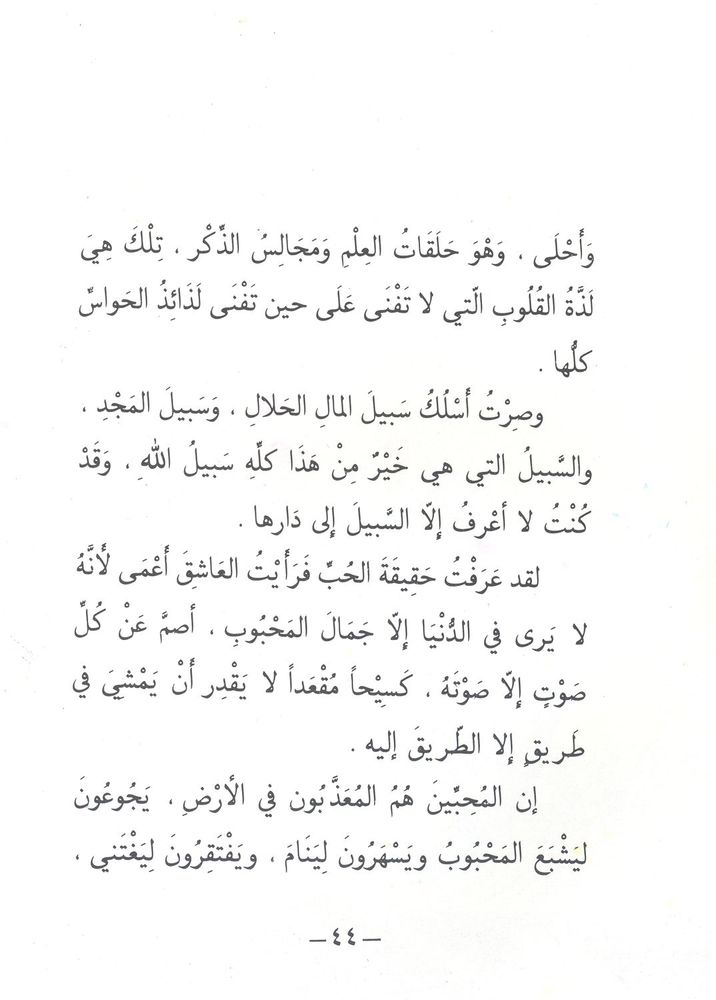 وَأَحْلَى ، وَهْوَ حَلَقَاتُ العِلْمِ وَمَجَالِسُ الذِّكْر ، تِلْكَ هِيَ
لَذَّةُ القُلُوبِ الّتي لا تَفْنَى عَلَى حين تَفْنَى لَذَائِذُ الحَواسِّ
كلُّها .
وصِرْتُ أَسْلُكُ سَبيلَ المالِ الحَلالِ ، وَسَبيلَ المَجْدِ ،
والسَّبيلُ التي هي خَيْرٌ مِنْ هَذَا كلِّهِ سَبيلُ اللهِ ، وَقَدْ
كُنْتُ لا أعْرفُ إلّا السَّبيلَ إلى دَارها .
لقد عَرَفْتُ حَقِيقَةَ الحُبِّ فَرَأَيْتُ العَاشِقَ أَعْمَى لأَنَّهُ
لا يَرى في الدُّنْيَا إلّا جَمَالَ المَحْبُوبِ ، أصمَّ عَنْ كُلِّ
صَوْتٍ إلّا صَوْتَهُ ، كَسِيْحاً مُقْعَداً لا يَقْدِر أَنْ يَمْشِيَ في
طَريقٍ إلا الطّريقَ إليه .
إن المُحِبِّينَ هُمُ المُعَذَّبُون في الأَرْضِ ، يَجُوعُونَ
ليَشْبَعَ المَحْبُوبُ ويَسْهَرُونَ لِيَنَامَ ، ويَفْتَقِرُونَ لِيَغْتَني ،
— ٤٤ —